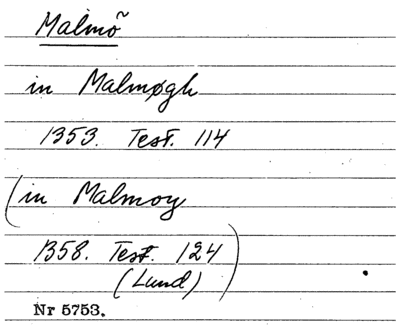 Malmõ
in Malmøgh
1353. Test. 114
(in Malmoy
1358. Test. 124)
(Lund)
Nr 5753.